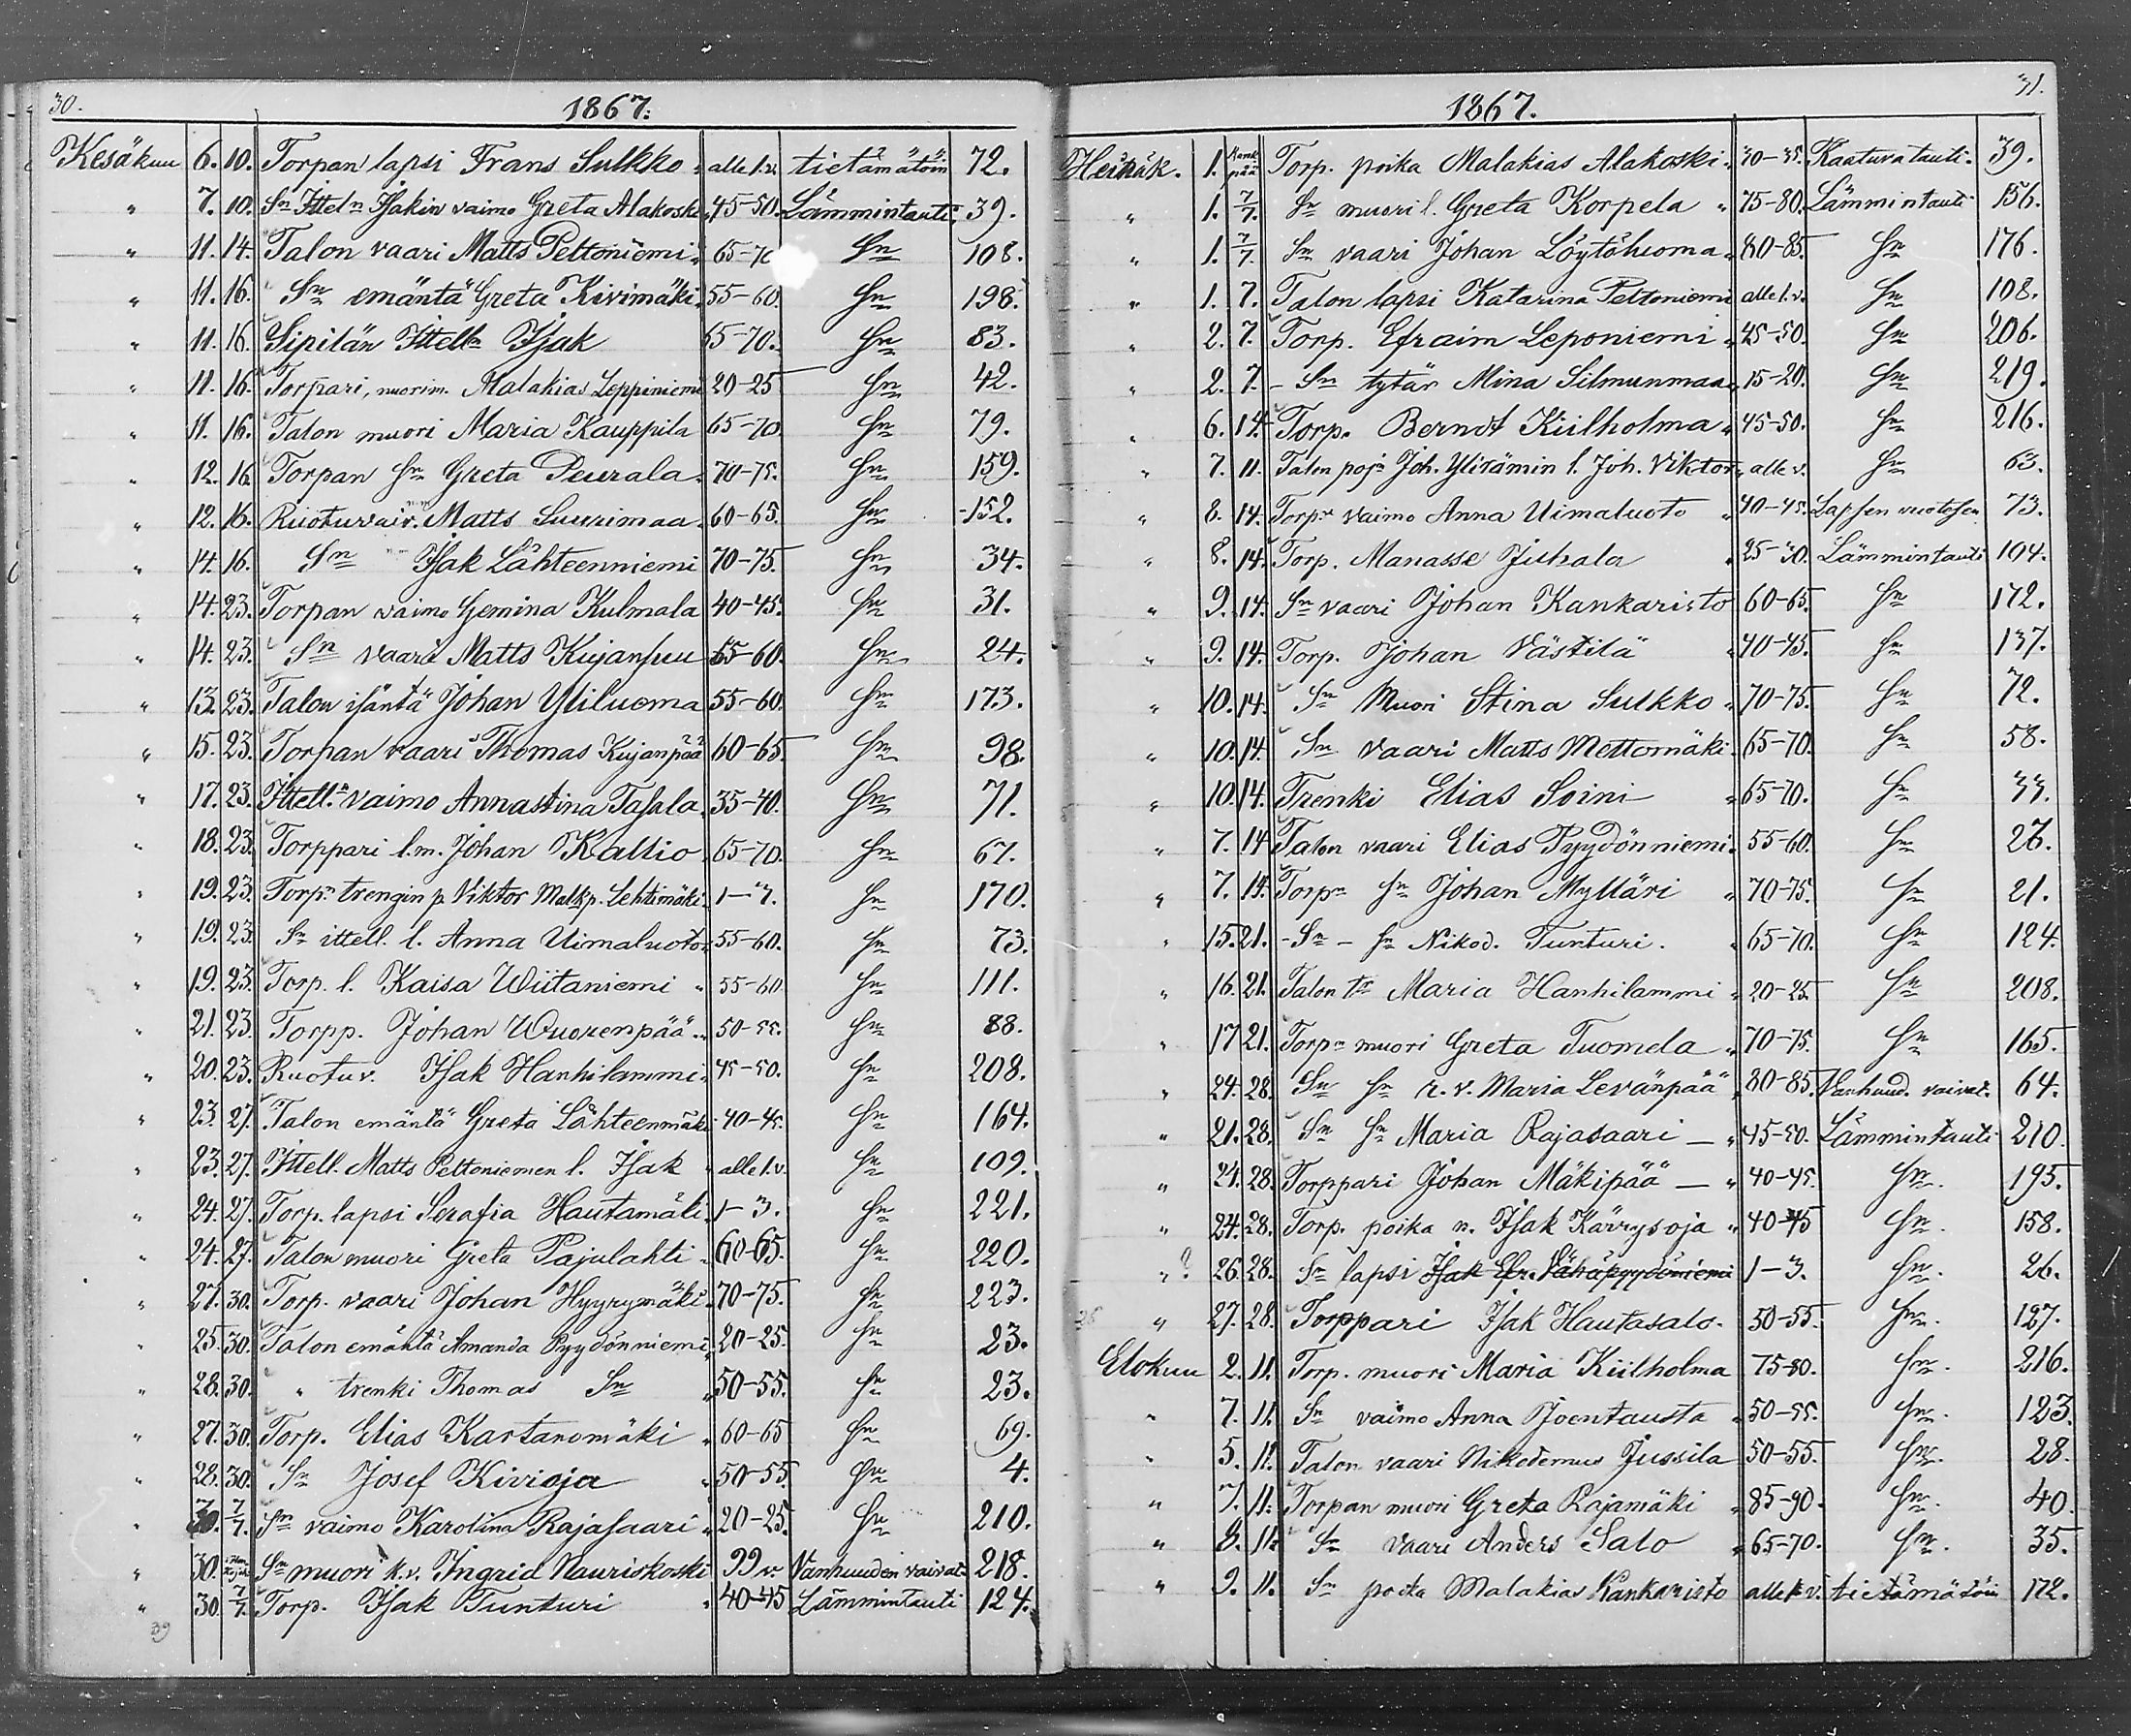 30.
1867.
Kesäkuu 6. 10. Torpan lapsi Frans Sulkko " alle 1.v. tietämätöin 72.
" 7. 10. Sn Itteln Isakin vaimo Greta Alakoski 45-50. Lämmintauti 39.
" 11. 14. Talon vaari Matts Peltoniemi " 65-70 Sn 108.
" 11. 16. Sn emäntä Greta Kivimäki " 55-60. Sn 198.
" 11. 16. Sipilän Ittelln Isak 65-70. Sn 83.
" 11. 16. Torpari, nuorim. Malakias Leppiniemi 20-25 Sn 42.
" 11. 16. Talon muori Maria Kauppila 65-70. Sn 79.
" 12. 16. Torpan Sn Greta Peurala 70-75. Sn 159.
" 12. 16. Ruotuvaiv. Matts Suurimaa 60-65. Sn 152.
" 14. 16. Sn Isak Lähteenniemi 70-75. Sn 34.
" 14. 23. Torpan vaimo Gemina Kulmala 40-45. Sn 31.
" 14. 23. Sn vaari Matts Kujansuu 55-60. Sn 24.
" 13. 23. Talon isäntä Johan Yliluoma 55-60. Sn 173.
" 15. 23. Torpan vaari Thomas Kujanpää 60-65 Sn 98.
" 17. 23. Ittell.n vaimo Annastina Tasala 35-40. Sn 71.
" 18. 23. Torppari l.m. Johan Kallio 65-70. Sn 67.
" 19. 23. Torpn trengin p. Viktor Malkp. Lehtimäki 1-3. Sn 170.
" 19. 23. Sn ittell. l. Anna Uimaluoto 55-60. Sn 73.
" 19. 23. Torp. l. Kaisa Wiitaniemi " 55-60 Sn 111.
" 21. 23. Torpp. Johan Wuorenpää " 50-55. Sn 88.
" 20. 23. Ruotuv. Isak Hanhilammi 45-50. Sn 208.
" 23. 27. Talon emäntä Greta Lähteenmäki 40-45. Sn 164.
" 23. 27. Ittell. Matts Peltoniemen l. Isak " alle 1.v. Sn 109.
" 24. 27. Torp. lapsi Serafia Hautamäki 1-3. Sn 221.
" 24. 27. Talon muori Greta Pajulahti " 60-65. Sn 220.
" 27. 30. Torp. vaari Johan Hyyrymäki 70-75. Sn 223.
" 25. 30. Talon emäntä Amanda Pyydönniemi 20-25. Sn 23.
" 28. 30. " trenki Thomas Sn 50-55. Sn 23.
" 27. 30. Torp. Elias Kartanomäki " 60-65 Sn 69.
" 28. 30. Sn Josef Kivioja " 50-55 Sn 4.
" 30. 7/7. Sn vaimo Karolina Rajasaari 20-25. Sn 210.
" 30. Sn muori r.v. Ingrid Nauriskoski 99 v. Vanhuuden vaivat 218.
" 30. 7/7. Torp. Isak Tunturi " 40-45 Lämmintauti 124.
39
31.
1867.
Heinäk. 1. Kankpää Torp. poika Malakias Alakoski " 30-35. Kaatuvatauti 39.
" 1. 7/7. Sn muori l. Greta Korpela " 75-80. Lämmintauti 156.
" 1. 7/7. Sn vaari Johan Löytöluoma " 80-85. Sn 176.
" 1. 7. Talon lapsi Katarina Peltoniemi alle 1.v. Sn 108.
" 2. 7. Torp. Efraim Leponiemi " 45-50. Sn 206.
" 2. 7. - Sn tytär Mina Silmunmaa " 15-20. Sn 219.
" 6. 14. Torp. Berndt Kiilholma " 45-50. Sn 216.
" 7. 11. Talon pojn Joh. Ylirämin l. Joh. Viktor " alle v. Sn 63.
" 8. 14. Torpn vaimo Anna Uimaluoto " 40-45. Lapsen vuotosen 73.
" 8. 14. Torp. Manasse Juhala " 25-30. Lämmintauti 104.
" 9. 14. Sn vaari Johan Kankaristo 60-65. Sn 172.
" 9. 14. Torp. Johan Västilä " 40-45. Sn 137.
" 10. 14. Sn Muori Stina Sulkko " 70-75. Sn 72.
" 10. 14. Sn vaari Matts Mettomäki " 65-70. Sn 58.
" 10. 14. Trenki Elias Soini " 65-70. Sn 33.
" 7. 14 Talon vaari Elias Pyydönniemi 55-60. Sn 23.
" 7. 14. Torpn Sn Johan Mylläri " 70-75. Sn 21.
" 15. 21. - Sn - Sn Nikod. Tunturi. " 65-70. Sn 124.
" 16. 21. Talon tr Maria Hanhilammi " 20-25. Sn 208.
" 17 21. Torpn muori Greta Tuomela " 70-75. Sn 165.
" 24. 28. Sn Sn r.v. Maria Levänpää " 80-85. Vanhuud. vaivat. 64.
" 21. 28. Sn Sn Maria Rajasaari - " 45-50. Lämmintauti 210.
" 21. 28. Torppari Johan Mäkipää - " 40-45. Sn. 195.
" 24. 28. Torp. poika n. Isak Kärrysoja " 40-45 Sn. 158.
"? 26. 28. Sn lapsi Isak Efr. Vähäpyydönniemi 1-3. Sn. 26.
" 27. 28. Torppari Isak Hautasalo. 50-55. Sn. 127.
Elokuu 2. 11. Torp. muori Maria Kiilholma 75-80. Sn. 216.
" 7. 11. Sn vaimo Anna Joentausta " 50-55. Sn. 123.
" 5. 11. Talon vaari Nikodemus Jussila 50-55. Sn. 28.
" 7. 11. Torpan muori Greta Rajamäki " 85-90. Sn. 40.
" 8. 11. Sn vaari Anders Salo " 65-70. Sn. 35.
" 9. 11. Sn poika Malakias Kankaristo alle 1 v. tietämätöin 172.